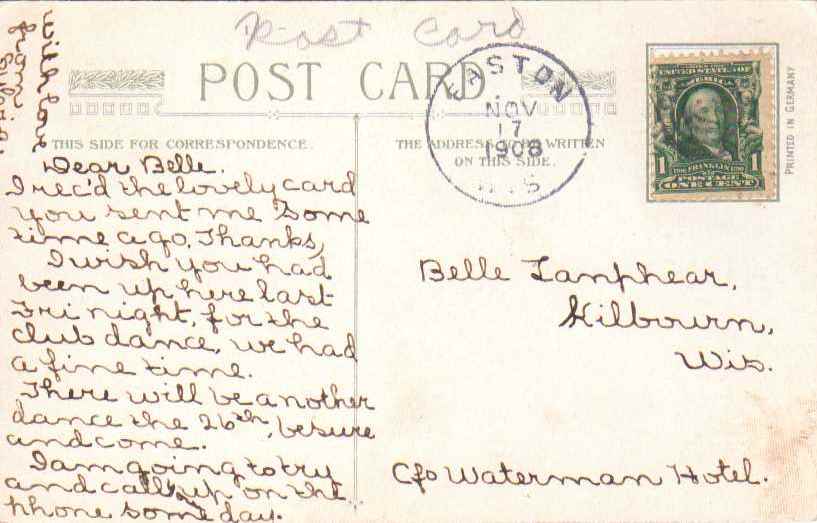 Post Card
POST CARD
EASTON
NOV
17
1908
WIS
UNITED STATES OF
AMERICA
1 1
FRANKLIN
POSTAGE
ONE CENT
PRINTED IN GERMANY
THIS SIDE FOR CORRESPONDENCE.
THE ADDRESS TO BE WRITTEN
ON THIS SIDE.
Dear Belle.
I rec'd the lovely card
you sent me some
time ago. Thanks,
I wish you had
been up here last
Fri night, for the
club dance, we had
a fine time.
There will be another
dance the 26th, be sure
and come.
I am going to try
and call up on the
phone some day.
with love
from
Belle Lanphear,
Kilbourn,
Wis.
C/o Waterman Hotel.